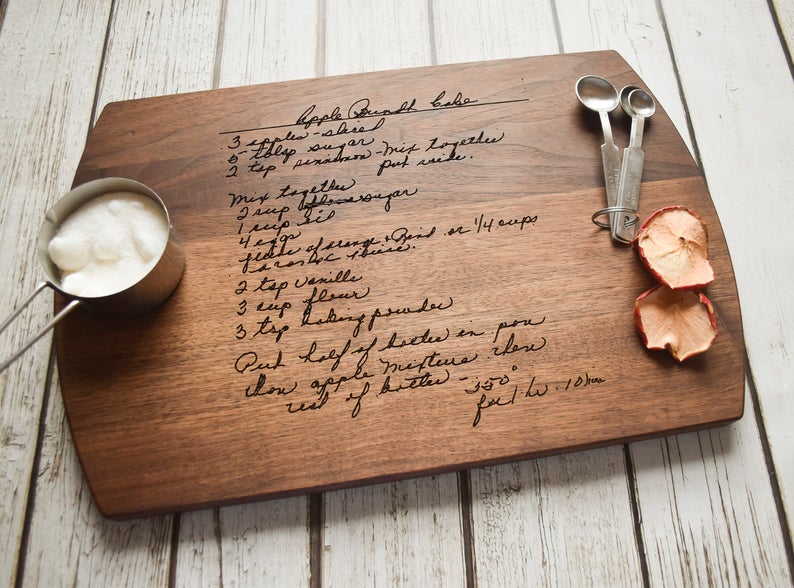 Apple Bundt Cake
3 apples - sliced
5 - tblsp sugar
2 tsp cinnamon - Mix together
put aside.
Mix together
2 cup sugar
1 cup oil
4 eggs
of orange + Rind or 1/4 cups
orange Juice.
2 tsp vanilla
3 cup flour
3 tsp baking powder
Put half of batter in pan
then apple mixture then
rest of batter - 350°
for 1 hr. 10